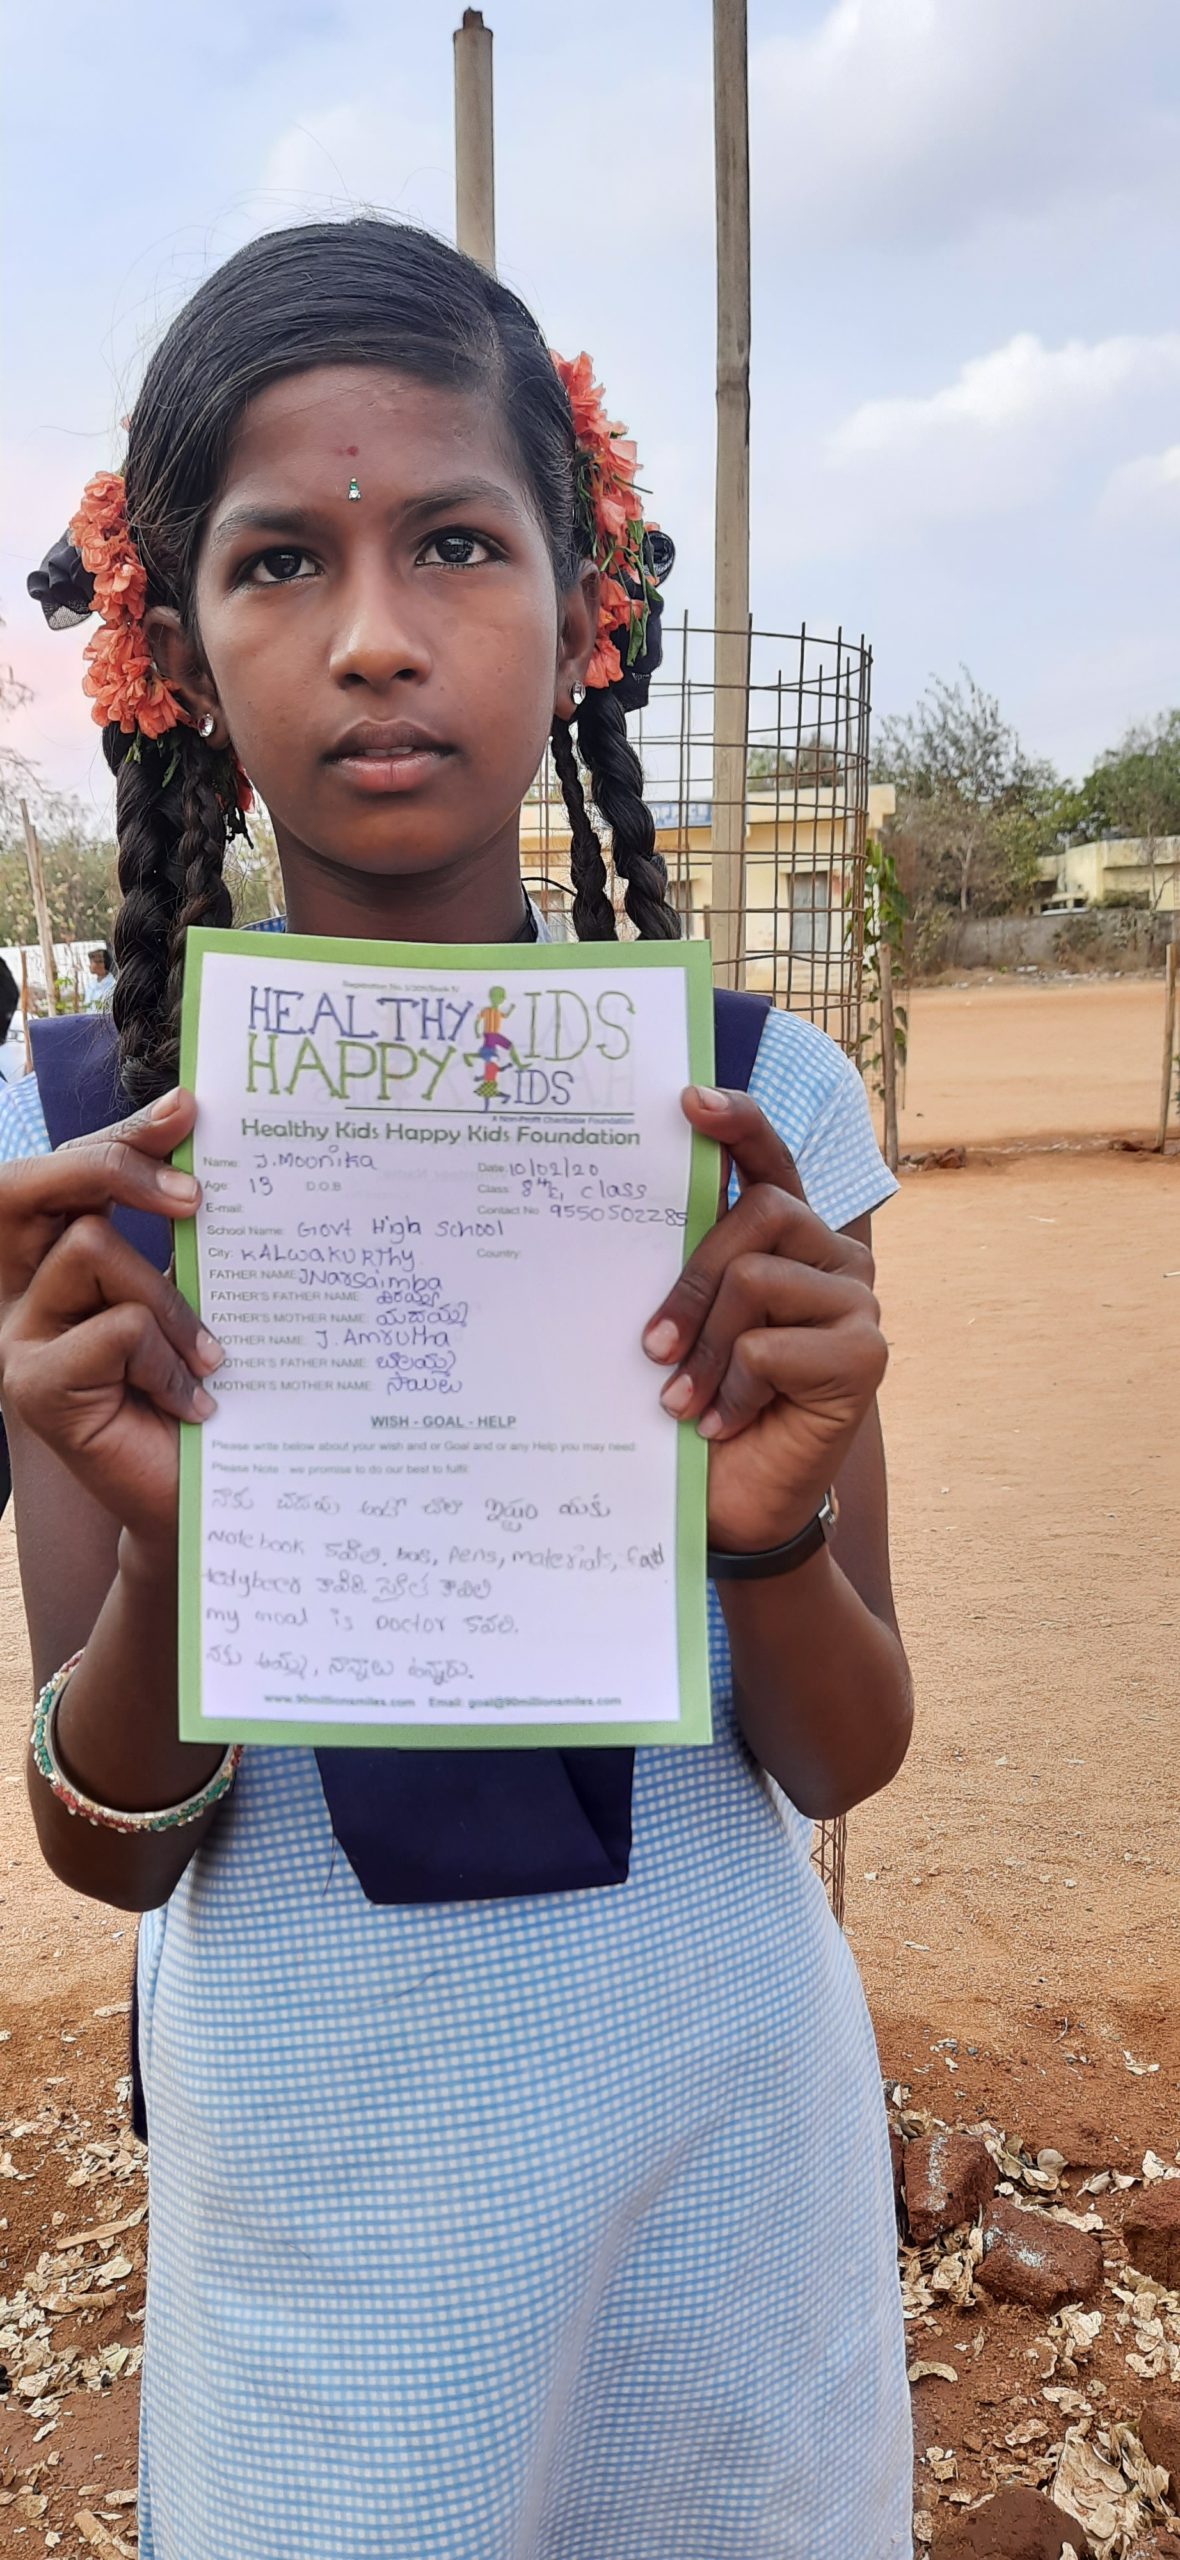 HEALTHY KIDS
HAPPY KIDS
A Non-Profit Charitable Foundation
Healthy Kids Happy Kids Foundation
Name: J. Moonika Date: 10/02/20
Age: 13 D.O.B 8th E, class
E-mail: Contact No 9550502285
School Name: Govt High School
City: KALWAKURThy. Country:
FATHER NAME: J Narsaimha
FATHER'S FATHER NAME:
FATHER'S MOTHER NAME:
MOTHER NAME: J. Amrutha
MOTHER'S FATHER NAME: బాలయ్య
MOTHER'S MOTHER NAME: సాయిలు
WISH - GOAL - HELP
Please write below about your wish and or Goal and or any Help you may need:
Please Note : we promise to do our best to fulfil:
నాకు చదువు అంటే చాలా ఇష్టం
Note book కావాలి, pens, materials,
కావాలి
my goal is Doctor కావాలి.
నాకు అమ్మ, నాన్నలు ఉన్నారు.
www.90millionsmiles.com Email: goal@90millionsmiles.com